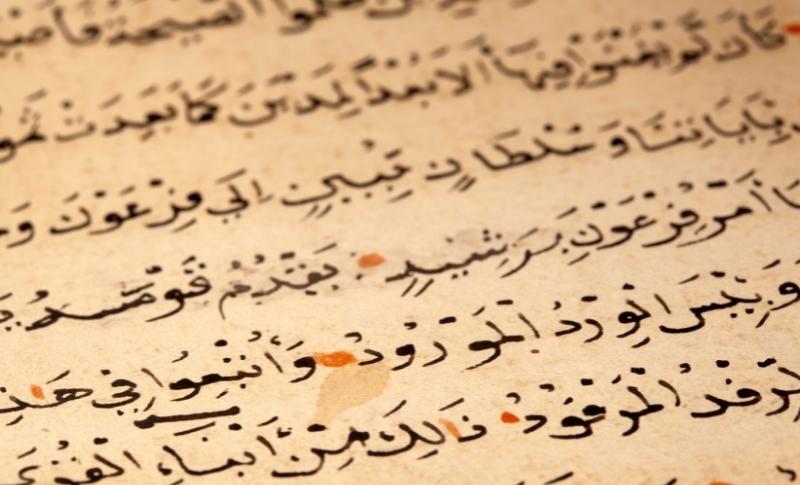 ظلموا الصيحة فأصبحوا
كأن لم يغنوا فيها ألا بعدا لمدين كما بعدت ثمود
بآياتنا وسلطان مبين إلى فرعون
أمر فرعون برشيد يقدم قومه
وبئس الورد المورود وأتبعوا في هذه
الرفد المرفود ذلك من أنباء القرى